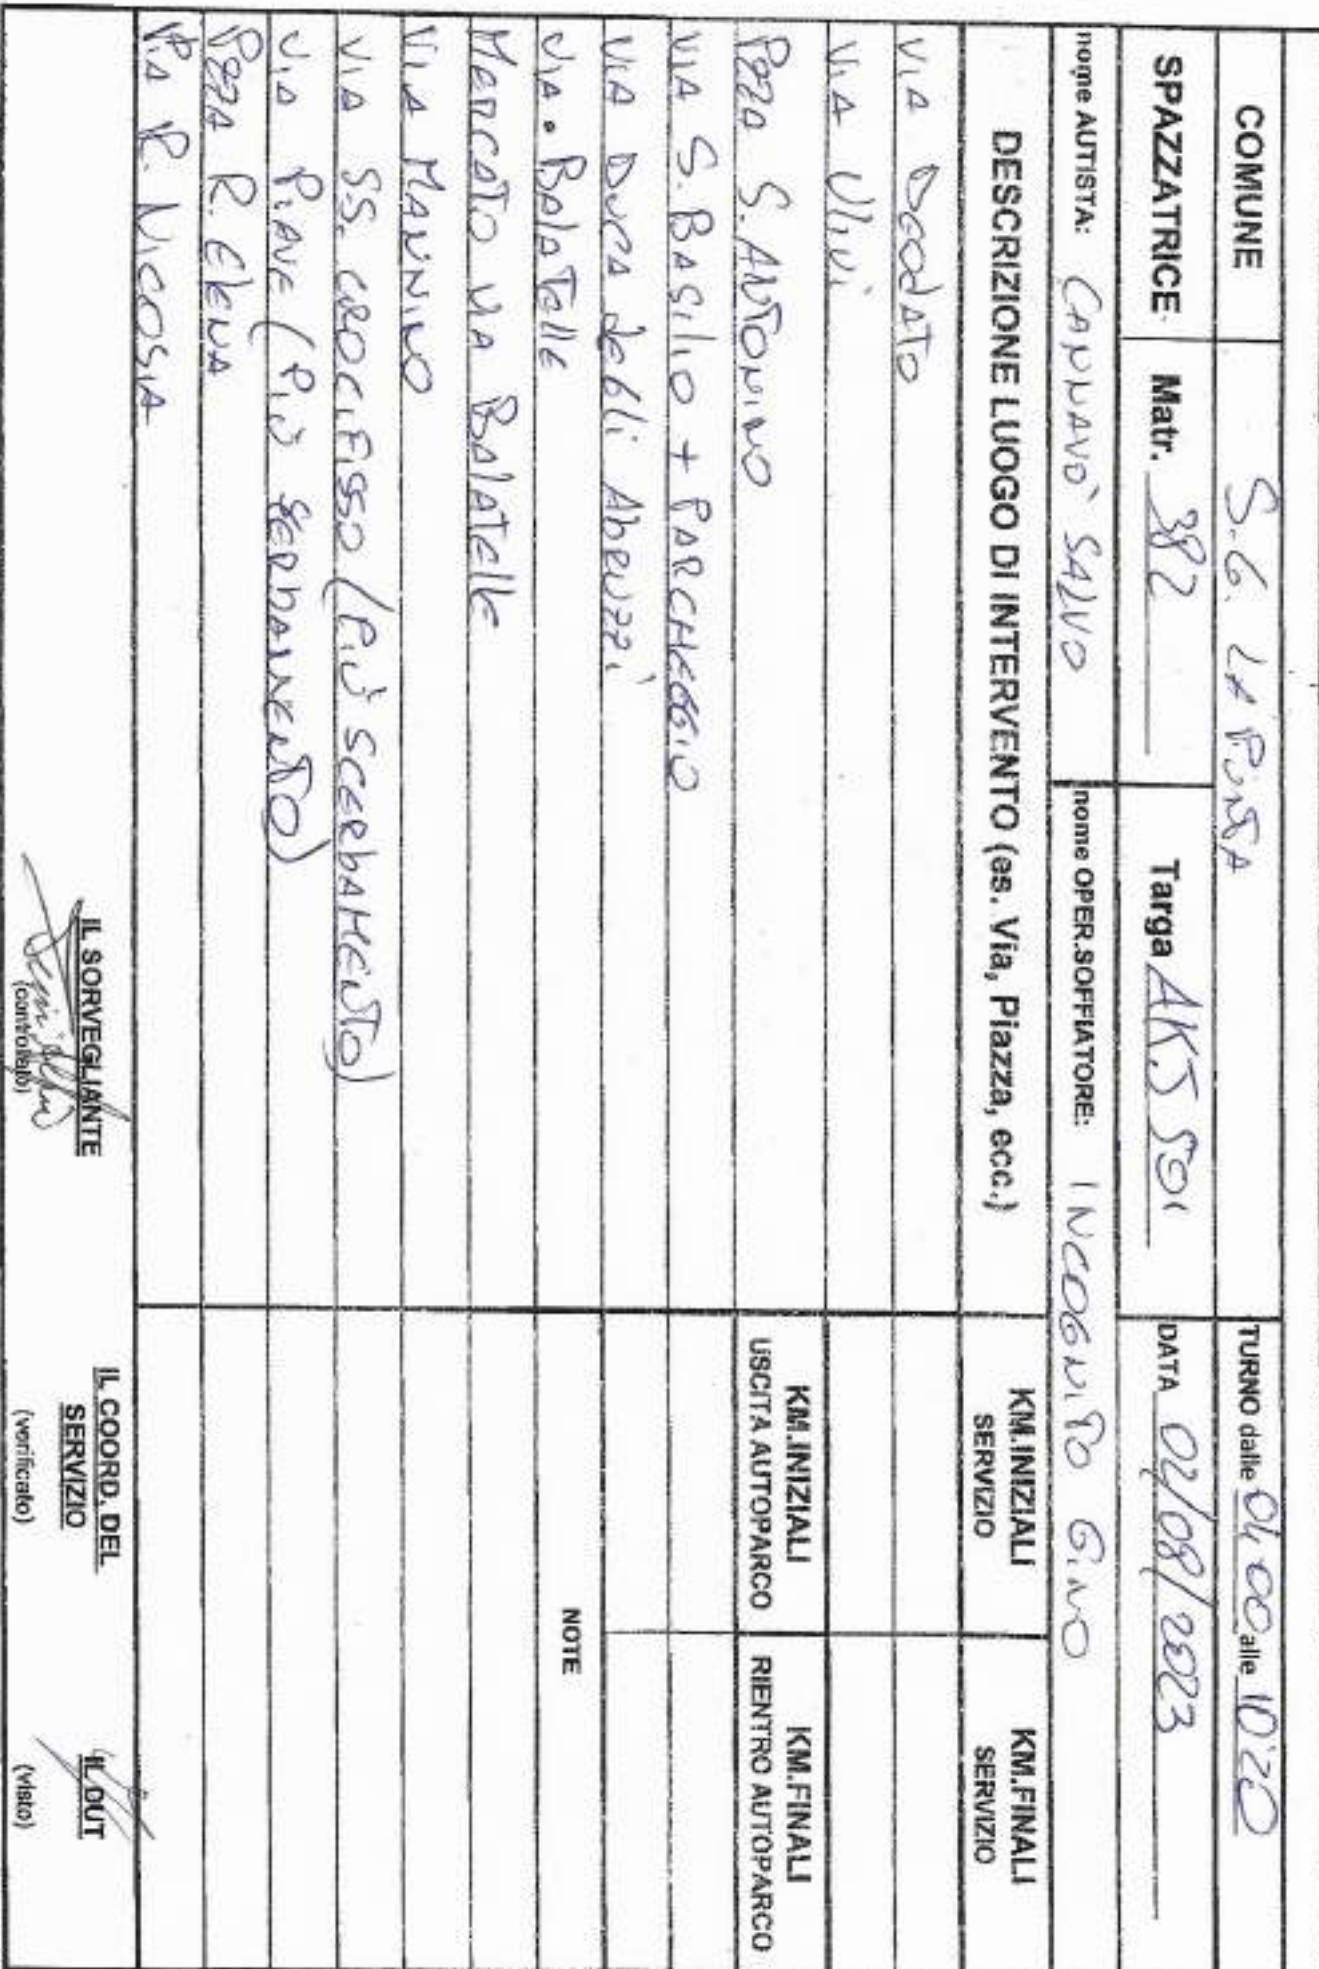 COMUNE S.G. LA PUNTA TURNO dalle 04 00 alle 10'20
SPAZZATRICE Matr. 382 Targa AKJ 501 DATA 02/08/2023
nome AUTISTA: CANNAVO' SALVO nome OPER.SOFFIATORE: INCOGNITO GINO
DESCRIZIONE LUOGO DI INTERVENTO (es. Via, Piazza, ecc.) KM.INIZIALI SERVIZIO KM.FINALI SERVIZIO
VIA DEODATO
VIA Ulivi
PZZA S. ANTONINO KM.INIZIALI USCITA AUTOPARCO KM.FINALI RIENTRO AUTOPARCO
VIA S. BASILIO + PARCHEGGIO
VIA DUCA degli Abruzzi
VIA. BAlATElle NOTE
MERCATO VIA BAlATElle
VIA MANNINO
VIA SS. CROCIFISSO (Più SCERbAMENTO)
VIA PIAVE (Più SERbAMENTO)
PZZA R. ElENA
VIA R. NICOSIA
IL SORVEGLIANTE
(controllato)
IL COORD. DEL
SERVIZIO
(verificato)
IL DUT
(visto)